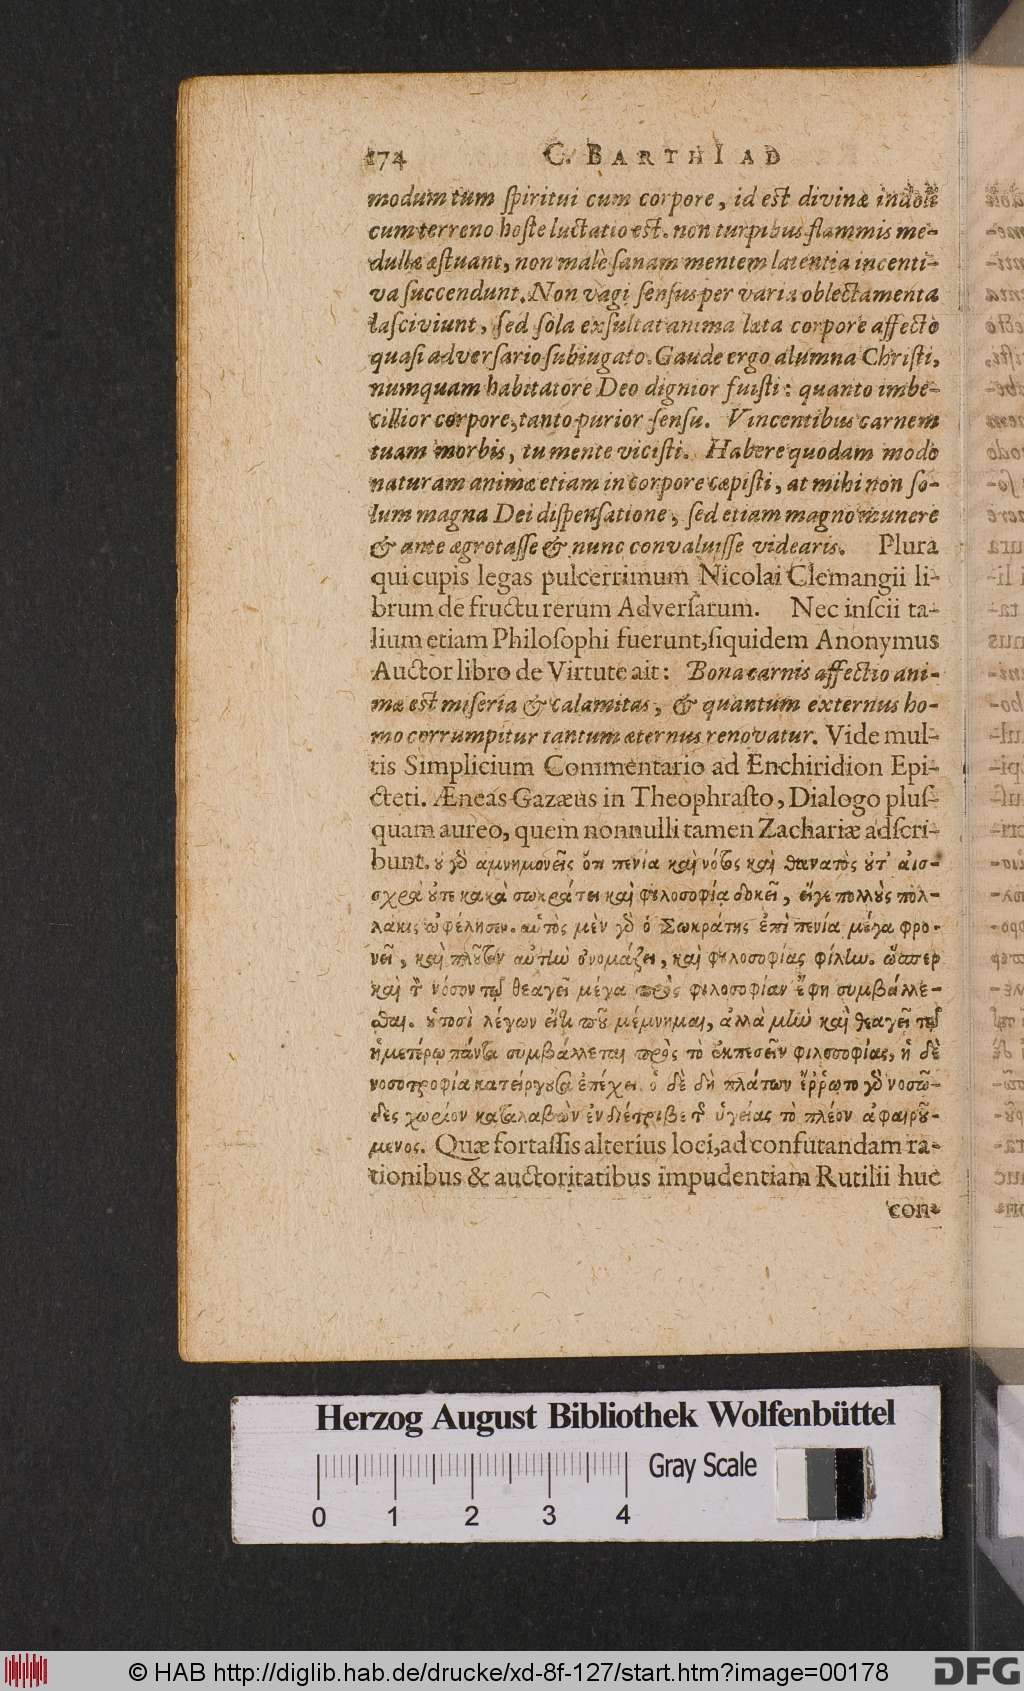 174 C. BARTHI AD
modum tum ſpiritui cum corpore, id eſt divinæ indoli
cum terreno hoſte luctatio est. non turpibus flammis me-
dullæ æſtuant, non malè ſanam mentem latentia incenti-
va ſuccendunt. Non vagi ſenſus per varia oblectamenta
laſciviunt, ſed ſola exſultat anima læta corpore affecto
quaſi adverſario ſubiugato. Gaude ergo alumna Chriſti,
numquam habitatore Deo dignior fuiſti: quanto imbe-
cillior corpore, tanto purior ſenſu. Vincentibus carnem
tuam morbis, tu mente viciſti. Habere quodam modo
naturam animæ etiam in corpore cæpiſti, at mihi non ſo-
lum magna Dei diſpenſatione, ſed etiam magno munere
& ante ægrotaſſe & nunc convaluiſſe videaris. Plura
qui cupis legas pulcerrimum Nicolai Clemangii li-
brum de fructu rerum Adverſarum. Nec inſcii ta-
lium etiam Philoſophi fuerunt, ſiquidem Anonymus
Auctor libro de Virtute ait: Bona carnis affectio ani-
mæ est miſeria & calamitas, & quantum externus ho-
mo corrumpitur tantum æternus renovatur. Vide mul-
tis Simplicium Commentario ad Enchiridion Epi-
cteti. Æneas Gazæus in Theophraſto, Dialogo pluſ-
quam aureo, quem nonnulli tamen Zachariæ adſcri-
bunt. ȣ γδ̀ αμνημονεῖς ὅτι πενία καὶ νόσος καὶ θανατὸς ȣ̓τ' αἰσ-
σχρὰ ȣ̓τε κακὰ σωκράτει καὶ φιλοσοφία δοκεῖ, εἴγε πολλȣ̀ς πολ-
λάκις ὠφέλησεν. αὐτὸς μὲν γδ̀ ὁ Σωκράτης ἐπὶ πενία μέγα φρο-
νεῖ, καὶ πλȣ͂τον αὐτὴν ὀνομάζει, καὶ φιλοσοφίας φίλην. ὥσπερ
καὶ τ̀ νόσον τῷ θεαγεῖ μέγα πρὸς φιλοσοφίαν ἔφη συμβάλλε-
σθαι. ȣ̔τοσὶ λέγων εἴ τι πȣ μέμνημαι, ἀλλὰ μὴν καὶ θεαγεῖ τῷ
ἡμετέρῳ πάντα συμβάλλεται πρὸς τὸ ἐκπεσεῖν φιλοσοφίας, ἡ δὲ
νοσοτροφία κατείργȣσα ἐπέχει. ὁ δὲ δὴ πλάτων ἔῤῥωτο γδ̀ νοσῶ-
δες χωρίον καταλαβὼν ἐνδιέτριβε τ̃ ὑγείας τὸ πλέον ἀφαιρȣ́-
μενος. Quæ fortaſſis alterius loci, ad confutandam ra-
tionibus & auctoritatibus impudentiam Rutilii huc
con-
Herzog August Bibliothek Wolfenbüttel
Gray Scale
0 1 2 3 4
© HAB http://diglib.hab.de/drucke/xd-8f-127/start.htm?image=00178
DFG